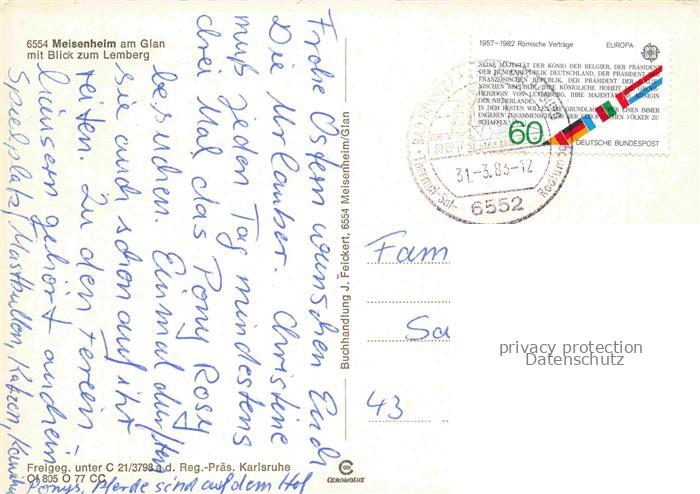 6554 Meisenheim am Glan
mit Blick zum Lemberg
Frohe Ostern wünschen Euch
Die Urlauber. Christine
muß jeden Tag mindestens
drei Mal das Pony Rosy
besuchen. Einmal durfte
sie auch schon auf ihr
reiten. Zu den Ferien
häusern gehört auch ein
Spielplatz, Mastbullen, Katzen,
Ponys, Pferde sind auf dem Hof
Buchhandlung J. Feickert, 6554 Meisenheim/Glan
Freigeg. unter C 21/3798 a d. Reg.-Präs. Karlsruhe
Of 805 O 77 CC
CEKOMOLUX
1957-1982 Römische Verträge EUROPA
SEINE MAJESTÄT DER KÖNIG DER BELGIER, DER PRÄSIDENT
DER BUNDESREPUBLIK DEUTSCHLAND, DER PRÄSIDENT
FRANZÖSISCHEN REPUBLIK, DER PRÄSIDENT DER
REPUBLIK, IHRE KÖNIGLICHE HOHEIT DIE GROSS-
HERZOGIN VON LUXEMBURG, IHRE MAJESTÄT DIE KÖNIGIN
DER NIEDERLANDE,
IN DEM FESTEN WILLEN, DIE GRUNDLAGEN FÜR EINEN IMMER
ENGEREN ZUSAMMENSCHLUSS DER EUROPÄISCHEN VÖLKER ZU
SCHAFFEN
60
DEUTSCHE BUNDESPOST
31.-3.83-12
6552
Fam
Sa
43
privacy protection
Datenschutz